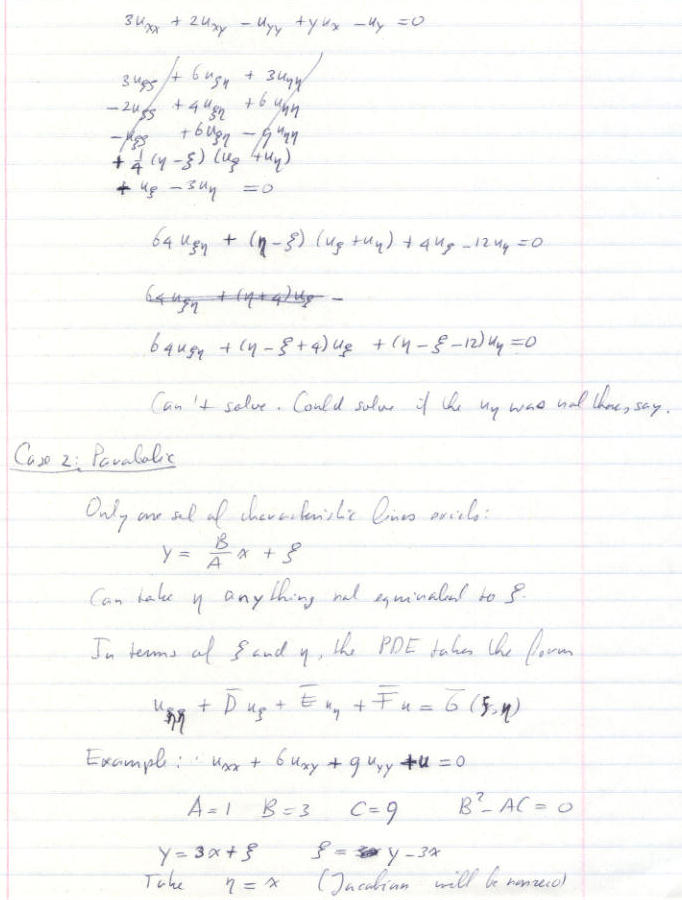 3u_xx + 2u_xy - u_yy + y u_x - u_y = 0
3u_ξξ + 6u_ξη + 3u_ηη
-2u_ξξ + 4u_ξη + 6u_ηη
-u_ξξ + 6u_ξη - 9u_ηη
+ 1/4 (η - ξ) (u_ξ + u_η)
+ u_ξ - 3u_η = 0
64 u_ξη + (η - ξ) (u_ξ + u_η) + 4u_ξ - 12u_η = 0
64 u_ξη + (η + 4) u_ξ -
64 u_ξη + (η - ξ + 4) u_ξ + (η - ξ - 12) u_η = 0
Can't solve. Could solve if the u_η was not there, say.
Case 2: Parabolic
Only one set of characteristic lines exists:
y = B/A x + ξ
Can take η anything not equivalent to ξ.
In terms of ξ and η, the PDE takes the form
u_ηη + D̅ u_ξ + E̅ u_η + F̅ u = G̅ (ξ, η)
Example: u_xx + 6u_xy + 9u_yy + u = 0
A = 1 B = 3 C = 9 B² - AC = 0
y = 3x + ξ ξ = y - 3x
Take η = x (Jacobian will be nonzero)